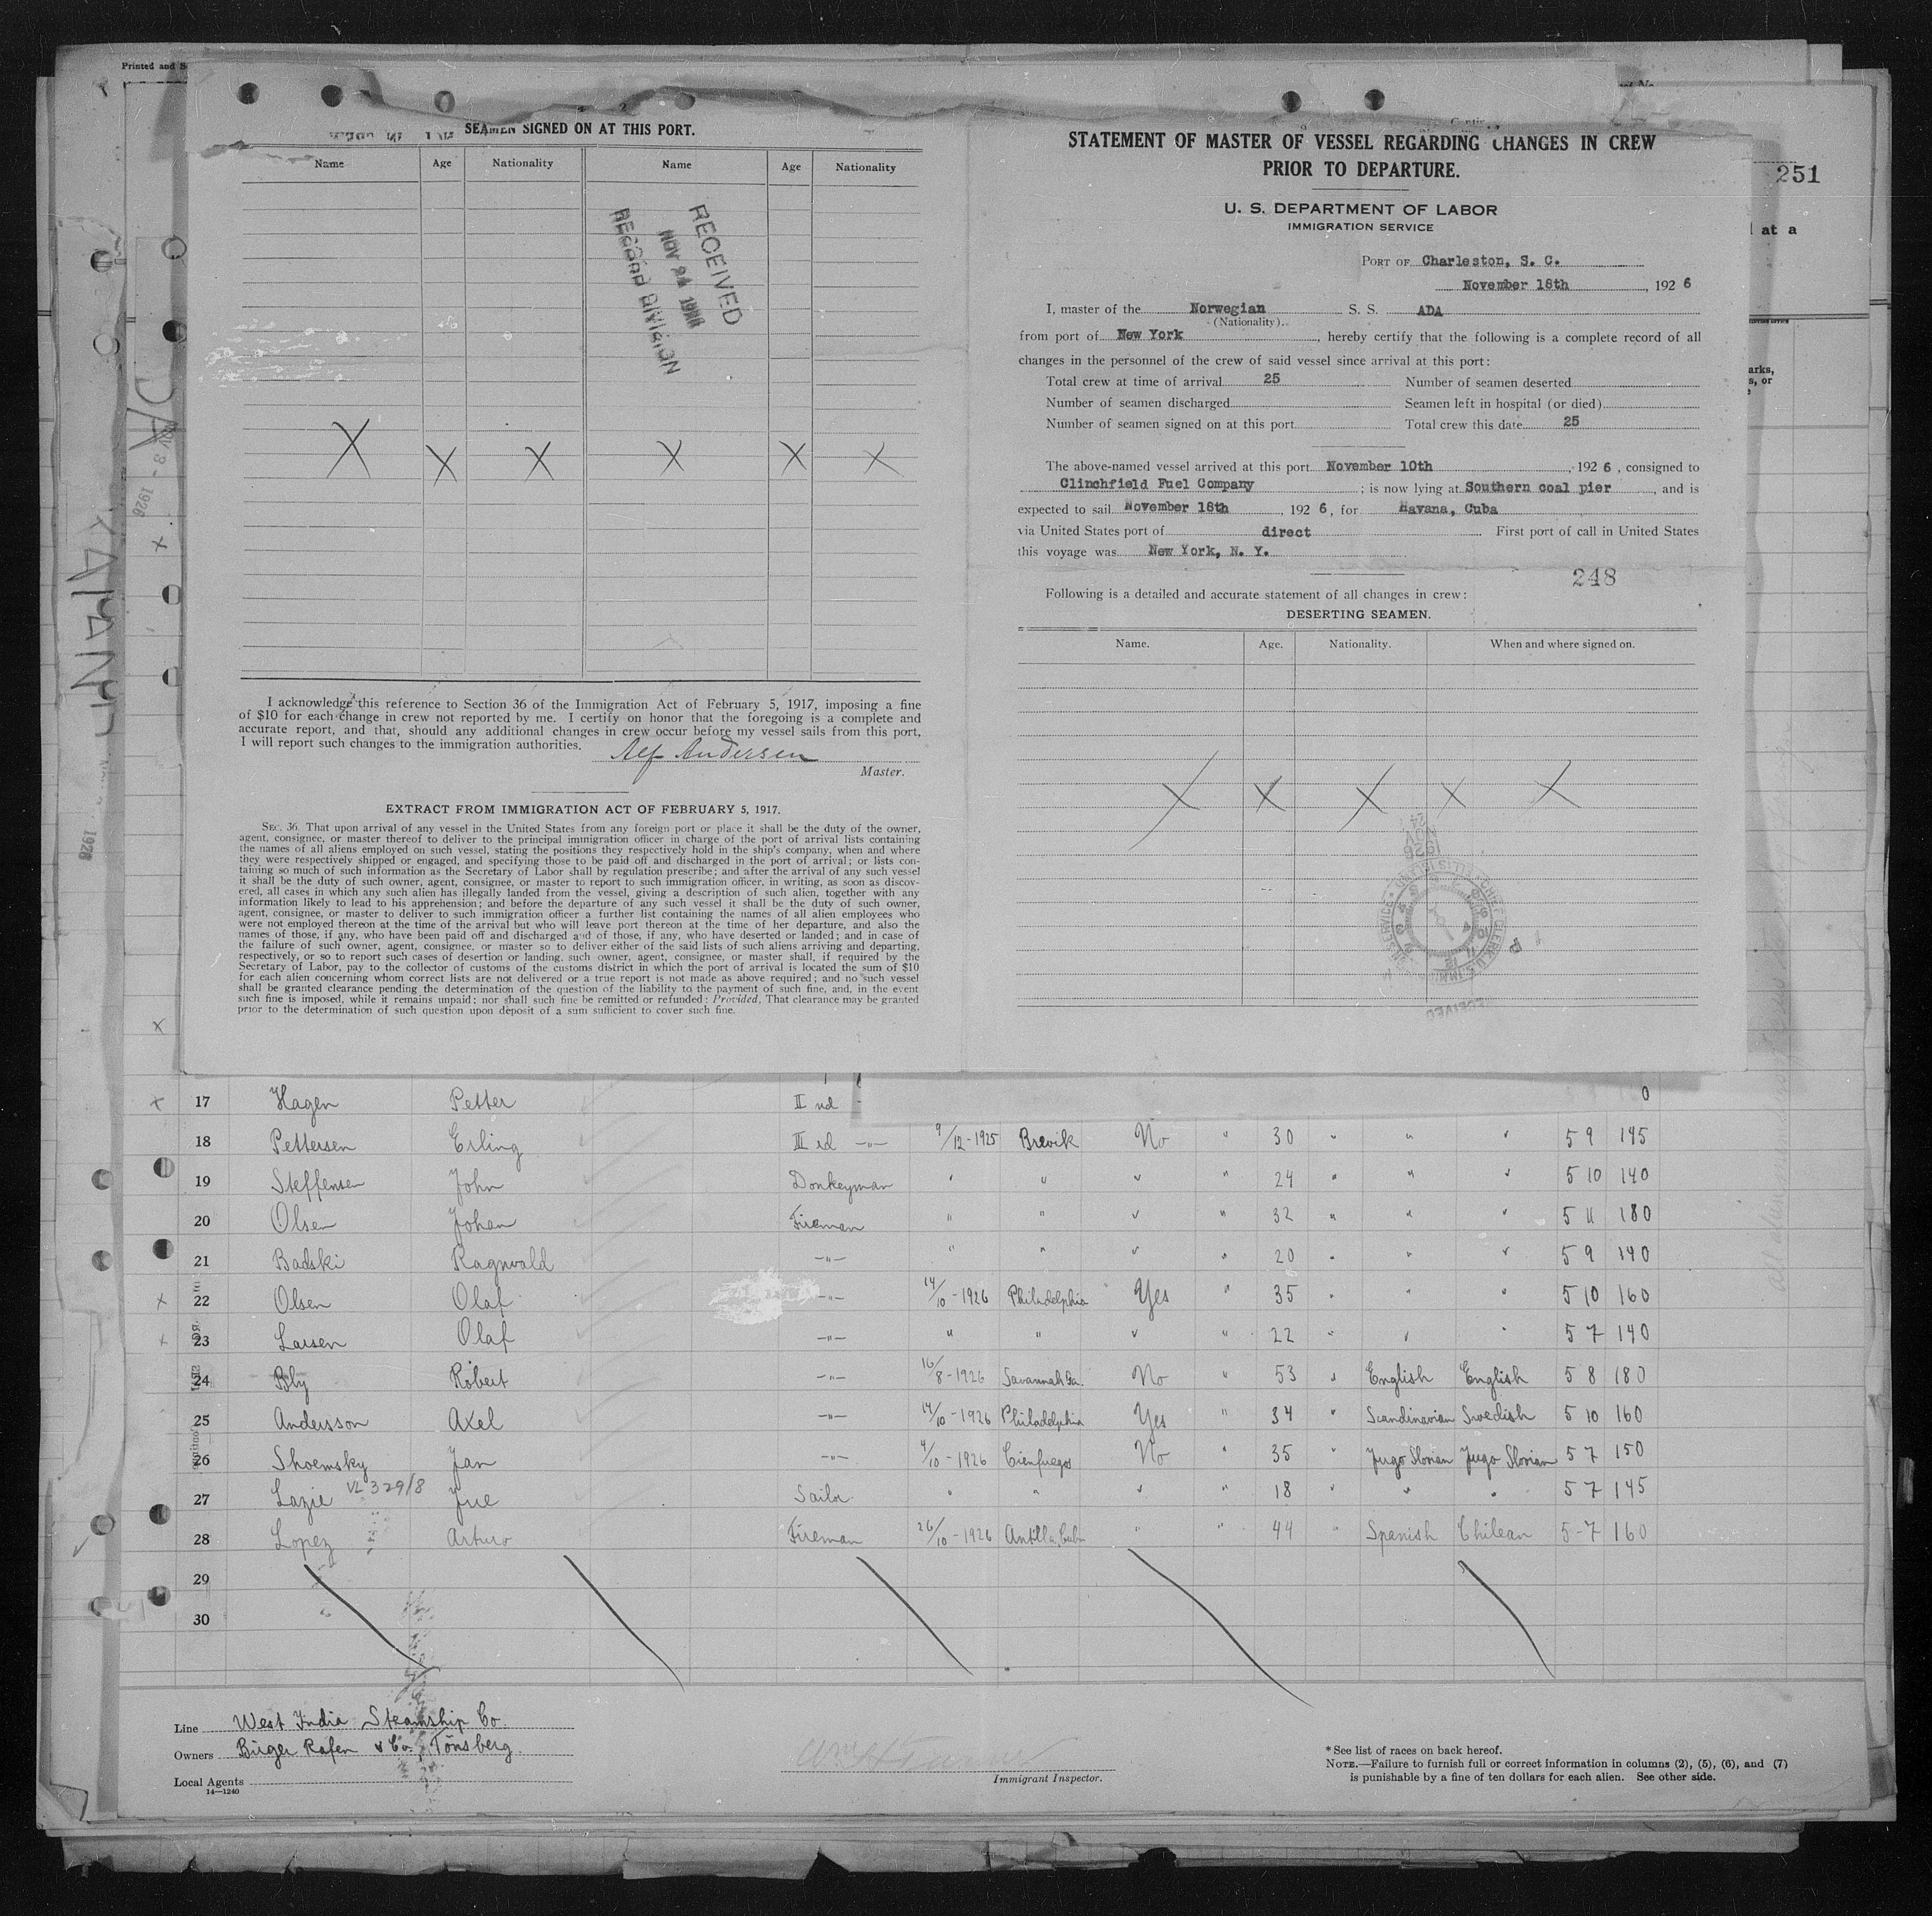 Printed and S
SEAMEN SIGNED ON AT THIS PORT.
Name Age Nationality Name Age Nationality
RECEIVED
NOV 24 1926
RECORD DIVISION
X X X X X X
I acknowledge this reference to Section 36 of the Immigration Act of February 5, 1917, imposing a fine
of $10 for each change in crew not reported by me. I certify on honor that the foregoing is a complete and
accurate report, and that, should any additional changes in crew occur before my vessel sails from this port,
I will report such changes to the immigration authorities.
Alf Andersen
Master.
EXTRACT FROM IMMIGRATION ACT OF FEBRUARY 5, 1917.
SEC. 36. That upon arrival of any vessel in the United States from any foreign port or place it shall be the duty of the owner,
agent, consignee, or master thereof to deliver to the principal immigration officer in charge of the port of arrival lists containing
the names of all aliens employed on such vessel, stating the positions they respectively hold in the ship's company, when and where
they were respectively shipped or engaged, and specifying those to be paid off and discharged in the port of arrival; or lists con-
taining so much of such information as the Secretary of Labor shall by regulation prescribe; and after the arrival of any such vessel
it shall be the duty of such owner, agent, consignee, or master to report to such immigration officer, in writing, as soon as discov-
ered, all cases in which any such alien has illegally landed from the vessel, giving a description of such alien, together with any
information likely to lead to his apprehension; and before the departure of any such vessel it shall be the duty of such owner,
agent, consignee, or master to deliver to such immigration officer a further list containing the names of all alien employees who
were not employed thereon at the time of the arrival but who will leave port thereon at the time of her departure, and also the
names of those, if any, who have been paid off and discharged and of those, if any, who have deserted or landed; and in case of
the failure of such owner, agent, consignee, or master so to deliver either of the said lists of such aliens arriving and departing,
respectively, or so to report such cases of desertion or landing, such owner, agent, consignee, or master shall, if required by the
Secretary of Labor, pay to the collector of customs of the customs district in which the port of arrival is located the sum of $10
for each alien concerning whom correct lists are not delivered or a true report is not made as above required; and no such vessel
shall be granted clearance pending the determination of the question of the liability to the payment of such fine, and, in the event
such fine is imposed, while it remains unpaid; nor shall such fine be remitted or refunded: Provided, That clearance may be granted
prior to the determination of such question upon deposit of a sum sufficient to cover such fine.
STATEMENT OF MASTER OF VESSEL REGARDING CHANGES IN CREW
PRIOR TO DEPARTURE.
U. S. DEPARTMENT OF LABOR
IMMIGRATION SERVICE
PORT OF Charleston, S. C.
November 18th, 1926
I, master of the Norwegian S. S. ADA
(Nationality)
from port of New York, hereby certify that the following is a complete record of all
changes in the personnel of the crew of said vessel since arrival at this port:
Total crew at time of arrival 25 Number of seamen deserted
Number of seamen discharged Seamen left in hospital (or died)
Number of seamen signed on at this port Total crew this date 25
The above-named vessel arrived at this port November 10th, 1926, consigned to
Clinchfield Fuel Company; is now lying at Southern coal pier, and is
expected to sail November 18th, 1926, for Havana, Cuba
via United States port of direct First port of call in United States
this voyage was New York, N. Y.
248
Following is a detailed and accurate statement of all changes in crew:
DESERTING SEAMEN.
Name. Age. Nationality. When and where signed on.
X X X X X
251
l at a
arks,
s, or
17 Hagen Petter II nd 0
18 Pettersen Erling III rd -"- 9/12-1925 Brevik No " 30 " " " 5 9 145
19 Steffensen John Donkeyman " " " " 24 " " " 5 10 140
20 Olsen Johan Fireman " " " " 32 " " " 5 11 180
21 Badski Ragnvald -"- " " " " 20 " " " 5 9 140
22 Olsen Olaf -"- 14/10-1926 Philadelphia Yes " 35 " " " 5 10 160
23 Larsen Olaf -"- " " " " 22 " " " 5 7 140
24 Bly Robert -"- 16/8-1926 Savannah Ga. No " 53 " English English 5 8 180
25 Andersson Axel -"- 14/10-1926 Philadelphia Yes " 34 " Scandinavian Swedish 5 10 160
26 Shoemsky Jan -"- 4/10-1926 Cienfuegos No " 35 " Jugo Slovian Jugo Slovian 5 7 150
27 Lazie VL 329/8 Jue Sailor " " " " 18 " " " 5 7 145
28 Lopez Arturo Fireman 26/10-1926 Antilla, Cuba " " 44 " Spanish Chilean 5-7 160
29
30
Line West India Steamship Co.
Owners Birger Rafen & Co., Tönsberg.
Local Agents
14—1240
Immigrant Inspector.
* See list of races on back hereof.
NOTE.—Failure to furnish full or correct information in columns (2), (5), (6), and (7)
is punishable by a fine of ten dollars for each alien. See other side.